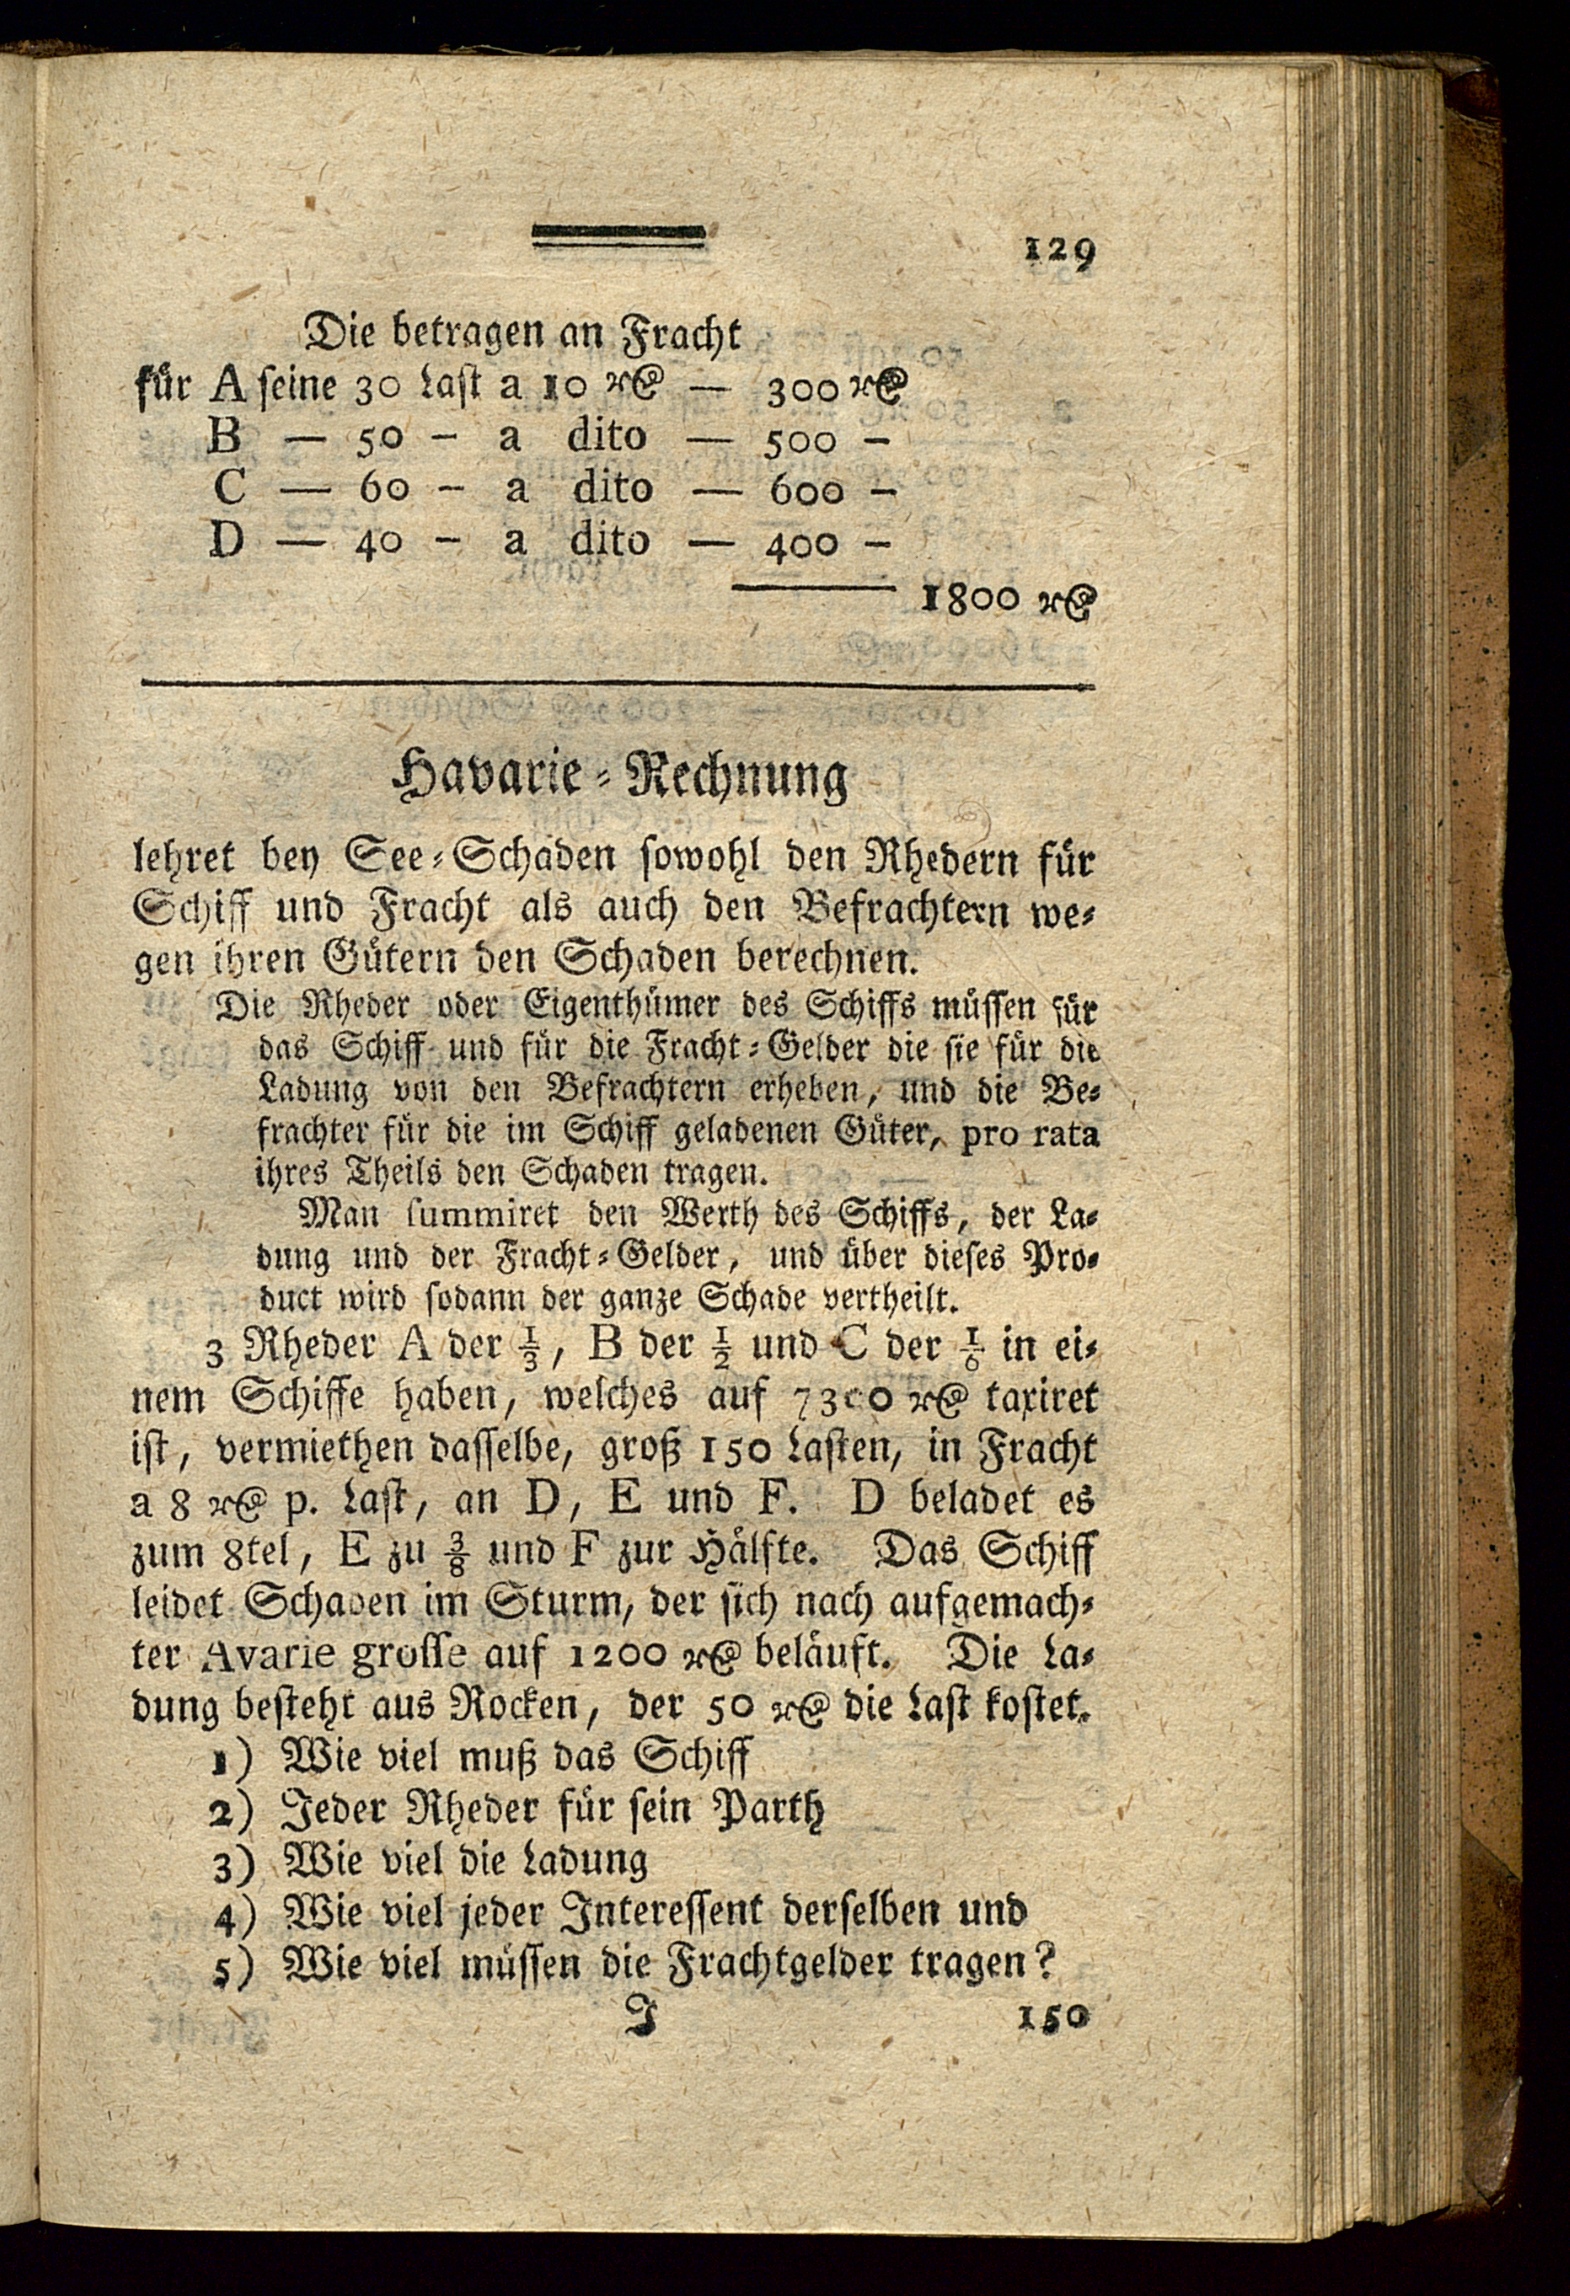 129
Die betragen an Fracht
für A seine 30 Last a 10 rthl — 300 rthl
B — 50 - a dito — 500 -
C — 60 - a dito — 600 -
D — 40 - a dito — 400 -
1800 rthl
Havarie-Rechnung
lehret bey See-Schaden sowohl den Rhedern für
Schiff und Fracht als auch den Befrachtern we-
gen ihren Gütern den Schaden berechnen.
Die Rheder oder Eigenthümer des Schiffs müssen für
das Schiff und für die Fracht-Gelder die sie für die
Ladung von den Befrachtern erheben, und die Be-
frachter für die im Schiff geladenen Güter, pro rata
ihres Theils den Schaden tragen.
Man summiret den Werth des Schiffs, der La-
dung und der Fracht-Gelder, und über dieses Pro-
duct wird sodann der ganze Schade vertheilt.
3 Rheder A der 1/3, B der 1/2 und C der 1/6 in ei-
nem Schiffe haben, welches auf 7300 rthl taxiret
ist, vermiethen dasselbe, groß 150 Lasten, in Fracht
a 8 rthl p. Last, an D, E und F. D beladet es
zum 8tel, E zu 3/8 und F zur Hälfte. Das Schiff
leidet Schaden im Sturm, der sich nach aufgemach-
ter Avarie grosse auf 1200 rthl beläuft. Die La-
dung besteht aus Rocken, der 50 rthl die Last kostet.
1) Wie viel muß das Schiff
2) Jeder Rheder für sein Parth
3) Wie viel die Ladung
4) Wie viel jeder Interessent derselben und
5) Wie viel müssen die Frachtgelder tragen?
J 150